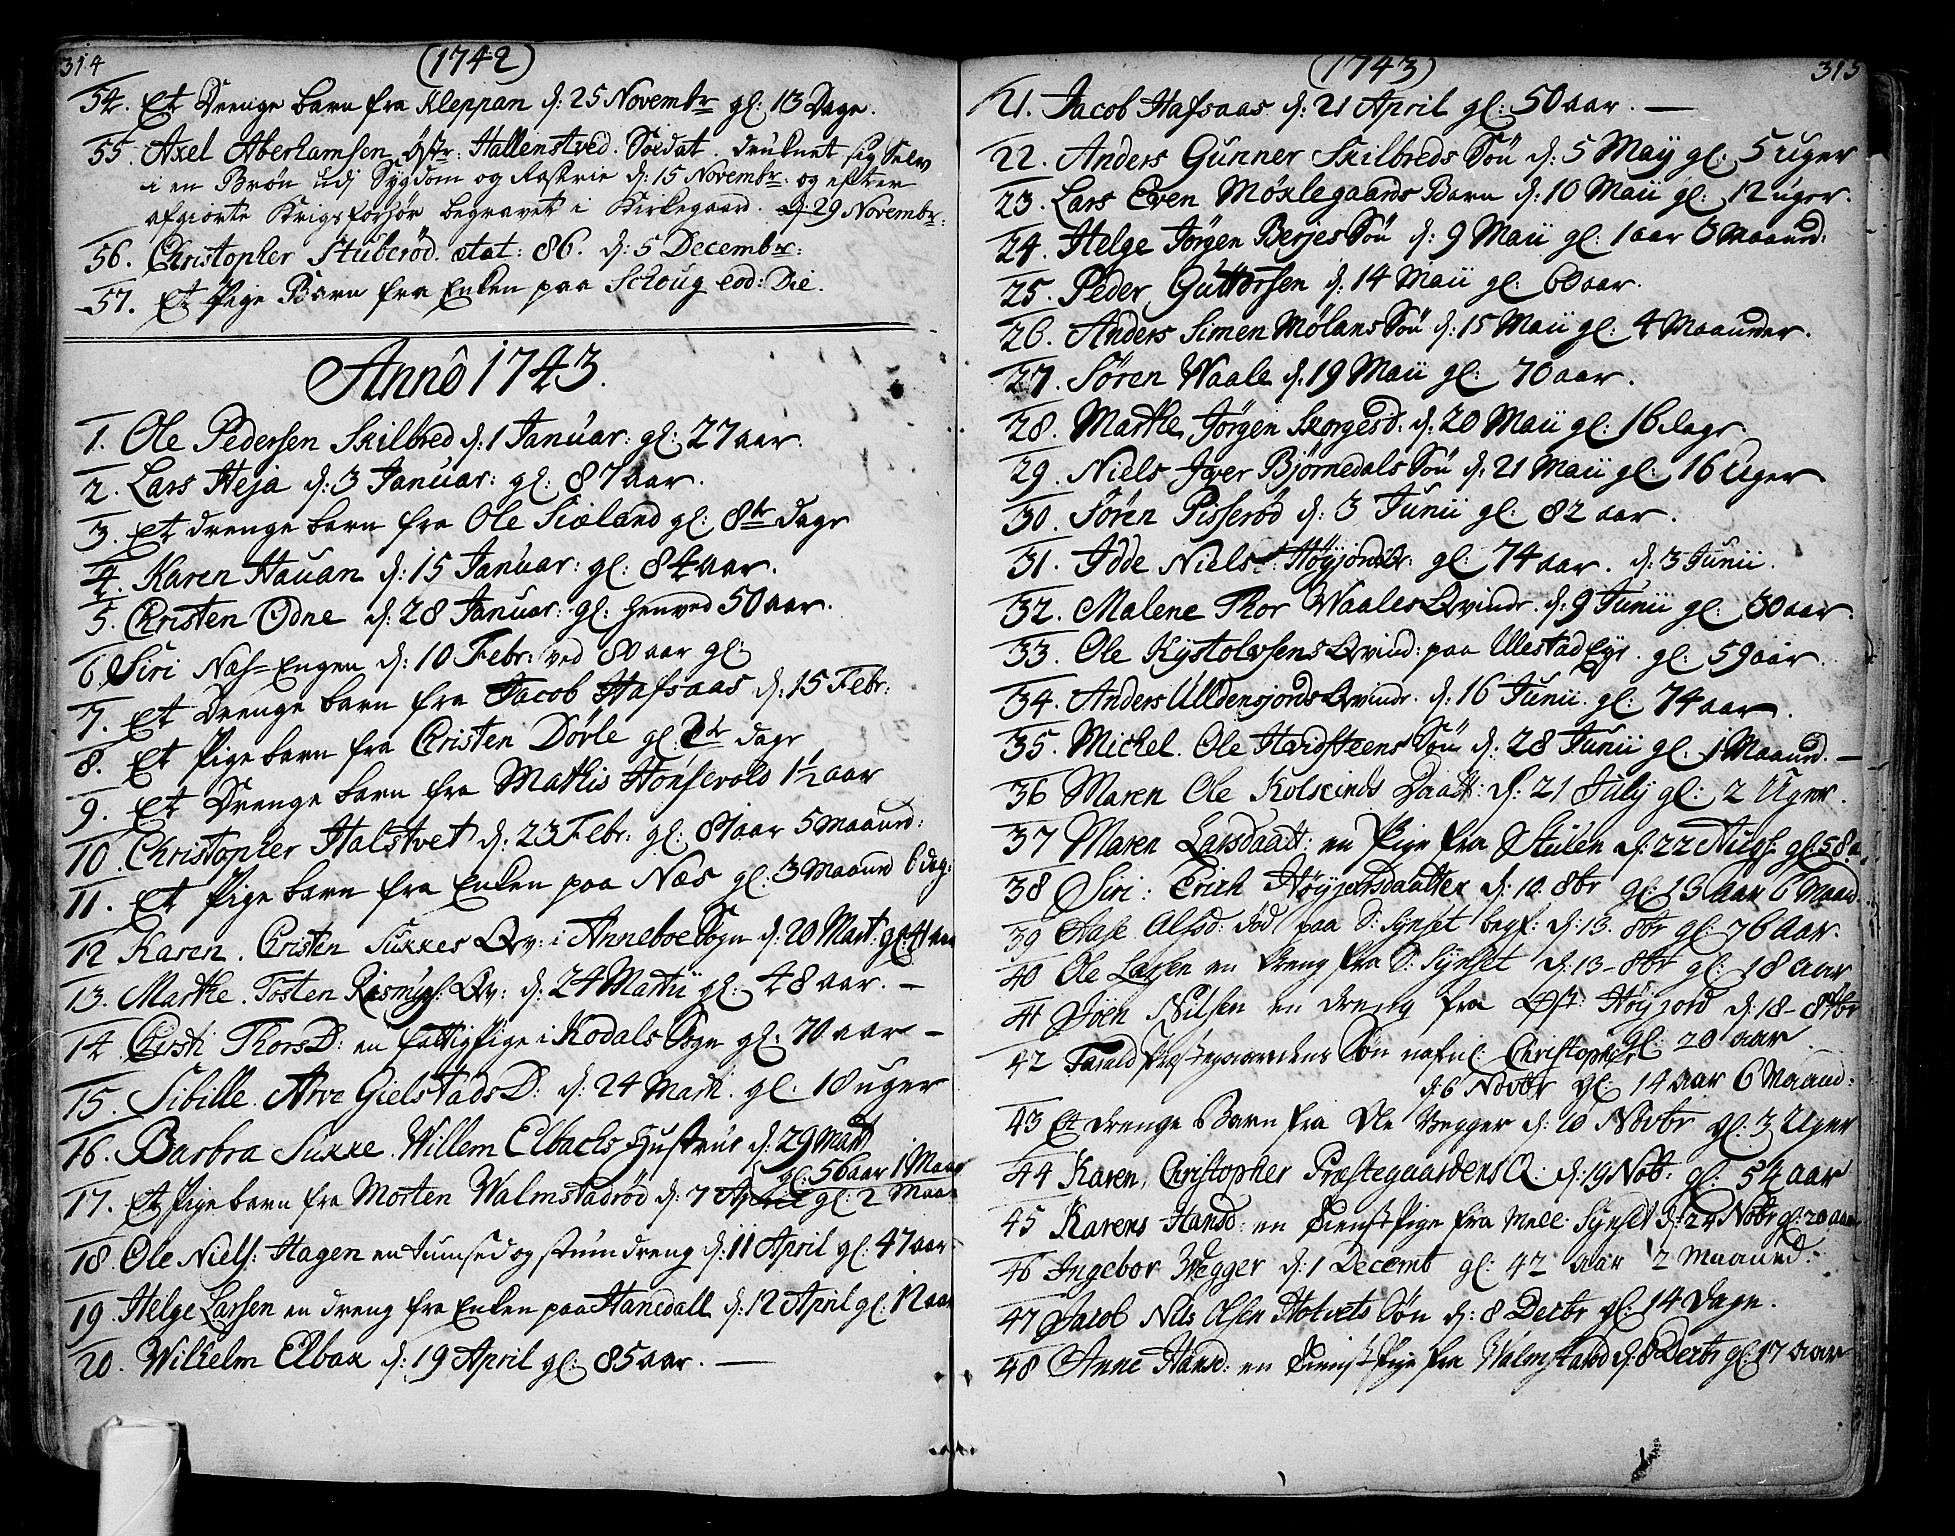 314
(1742)
54. Et Drenge barn fra Kleppan d: 25 Novembr gl: 13 Dage.
55. Axel Aberhamsen Hallenstved. Soldat. druknet sig Selv
i en Brøn udj Sygdom og Raserie d: 15 Novembr: og efter
afgiorte Krigsforhør begravet i Kirkegaard. d: 29 Novembr:
56. Christopher Stuberød. ætat: 86. d: 5 Decembr:
57. Et Pige Barn fra Enken paa Schoug eod: Die.
Anno 1743.
1. Ole Pedersen Skilbred d: 1 Januar: gl: 27 aar.
2. Lars Heja d: 3 Januar: gl: 87 aar.
3. Et drenge barn fra Ole Siæland gl: 8te dage
4. Karen Hauan d: 15 Januar: gl: 84 aar.
5. Christen Odne d: 28 Januar: gl: henved 50 aar.
6. Siri Næs-Engen d: 10 Febr: ved 80 aar gl:
7. Et Drenge barn fra Jacob Hafsaas d: 15 Febr:
8. Et Pige barn fra Christen Dørle gl: dage
9. Et Drenge barn fra Mathis Hønsevold 1½ aar
10. Christopher Halstvet d: 23 Febr: gl: 87 aar 5 Maaned:
11. Et Pige barn fra Enken paa Næs gl: 3 Maaned 6 dag:
12 Karen. Cristen Sukkes Qv: i Anneboe Sogn d: 20 Mart: gl: 41 aar
13. Marthe. Tosten Qv: d: 24 Martii gl: 48 aar. —
14 Cirsti Thors D: en fattig Pige i Kodals Sogn gl: 70 aar —
15. Sibille. Arve Gielstads D: d: 24 Mart. gl: 18 uger
16. Barbra Sukke. Willem Elbachs Hustrue d: 29 Mart
gl: 56 aar 1 Maan
17. Et Pige barn fra Morten Walmstadrød d: 7 April gl: 2 Maan
18. Ole Niels: Hagen en tumsed og stum dreng d: 11 April gl: 47 aar.
19. Helge Larsen en dreng fra Enken paa Hanedall d: 12 April gl: 12 aar
20. Wilhelm Elbax d: 19 April gl: 85 aar. —
315
(1743)
21. Jacob Hafsaas d: 21 April gl: 50 aar. —
22. Anders Gunner Skilbreds Søn d: 5 Maij gl: 5 uger
23. Lars Even Møxlegaards Barn d: 10 Maii gl: 12 uger.
24. Helge Jørgen Berjes Søn d: 9 Maii gl: 1 aar 6 Maaned:
25. Peder Guttorsen d: 14 Maii gl: 60 aar.
26. Anders Simen Mølans Søn d: 15 Maii gl: 4 Maaneder.
27. Søren Waale d: 19 Maii gl: 70 aar.
28. Marthe Jørgen Skorgesd: d: 20 Maii gl: 16 dage
29. Niels Iver Bjørnedals Søn d: 21 Maii gl: 16 Uger
30. Søren Pisserød d: 3 Junii gl: 82 aar.
31. Idde Niels gl: 74 aar. d: 3 Junii.
32. Malene Thor Waales Qvinde. d: 9 Junii gl: 30 aar.
33. Ole Kystolvsens Qvind: paa Ulestad Eje. gl: 59 aar.
34. Anders Ulldensjords Qvinde. d: 16 Junii. gl: 74 aar.
35. Michel. Ole Hardsteens Søn d: 28 Junii gl: 1 Maaned. —
36 Maren Ole Kolkinds Daatt: d: 21 July gl: 2 Uger.
37 Maren Larsdaatt: en Pige fra Stulen d: 22 Augs: gl: 58 a.
38 Siri: Erich Høyjordsdaatter d: 10. 8br gl: 13 Aar 6 Maan
39 Aase Alfsd: død paa S: Synset begr: d: 13. 8br gl: 76 Aar.
40 Ole Larsen en Dreng fra S: Synset d: 13-8br gl: 18 aar
41 Joen Nilsen en dreng fra Høyjord d: 18-8br
gl: 20 aar
42 Farald Præstegaardens Søn nafnl: Christopher
d: 6 Novbr gl: 14 aar 6 Maaned:
43 Et drenge Barn fra Ole Vegger d: 10 Novbr gl: 3 Uger
44 Karen, Christopher Præstegaardens Q: d: 19 Nob: gl: 54 aar
45 Karens Hansd: en tienst Pige fra Mell: Synset d: 24 Nobr gl: 20 aar
46 Ingebor Wegger d: 1 Decemb gl: 42 aar 2 Maaned:
47 Jacob Nils Olsen Hotvets Søn d: 8 Decbr gl: 14 Dage.
48 Anne Hansd: en tienst Pige fra Walmstad d: 8 Decbr gl: 17 aar